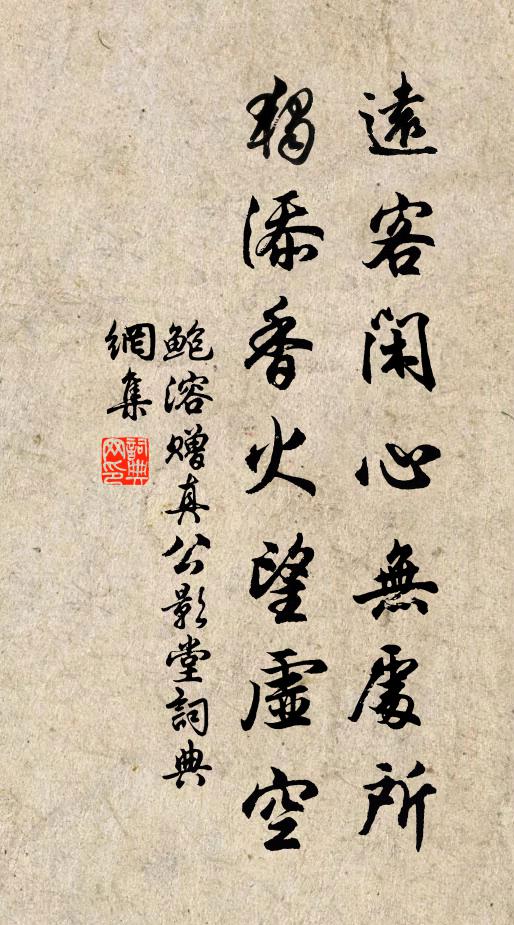 遠客閑心無處所
獨添香火望虛空
鮑溶贈真公影堂詞典
網集
詞典網印